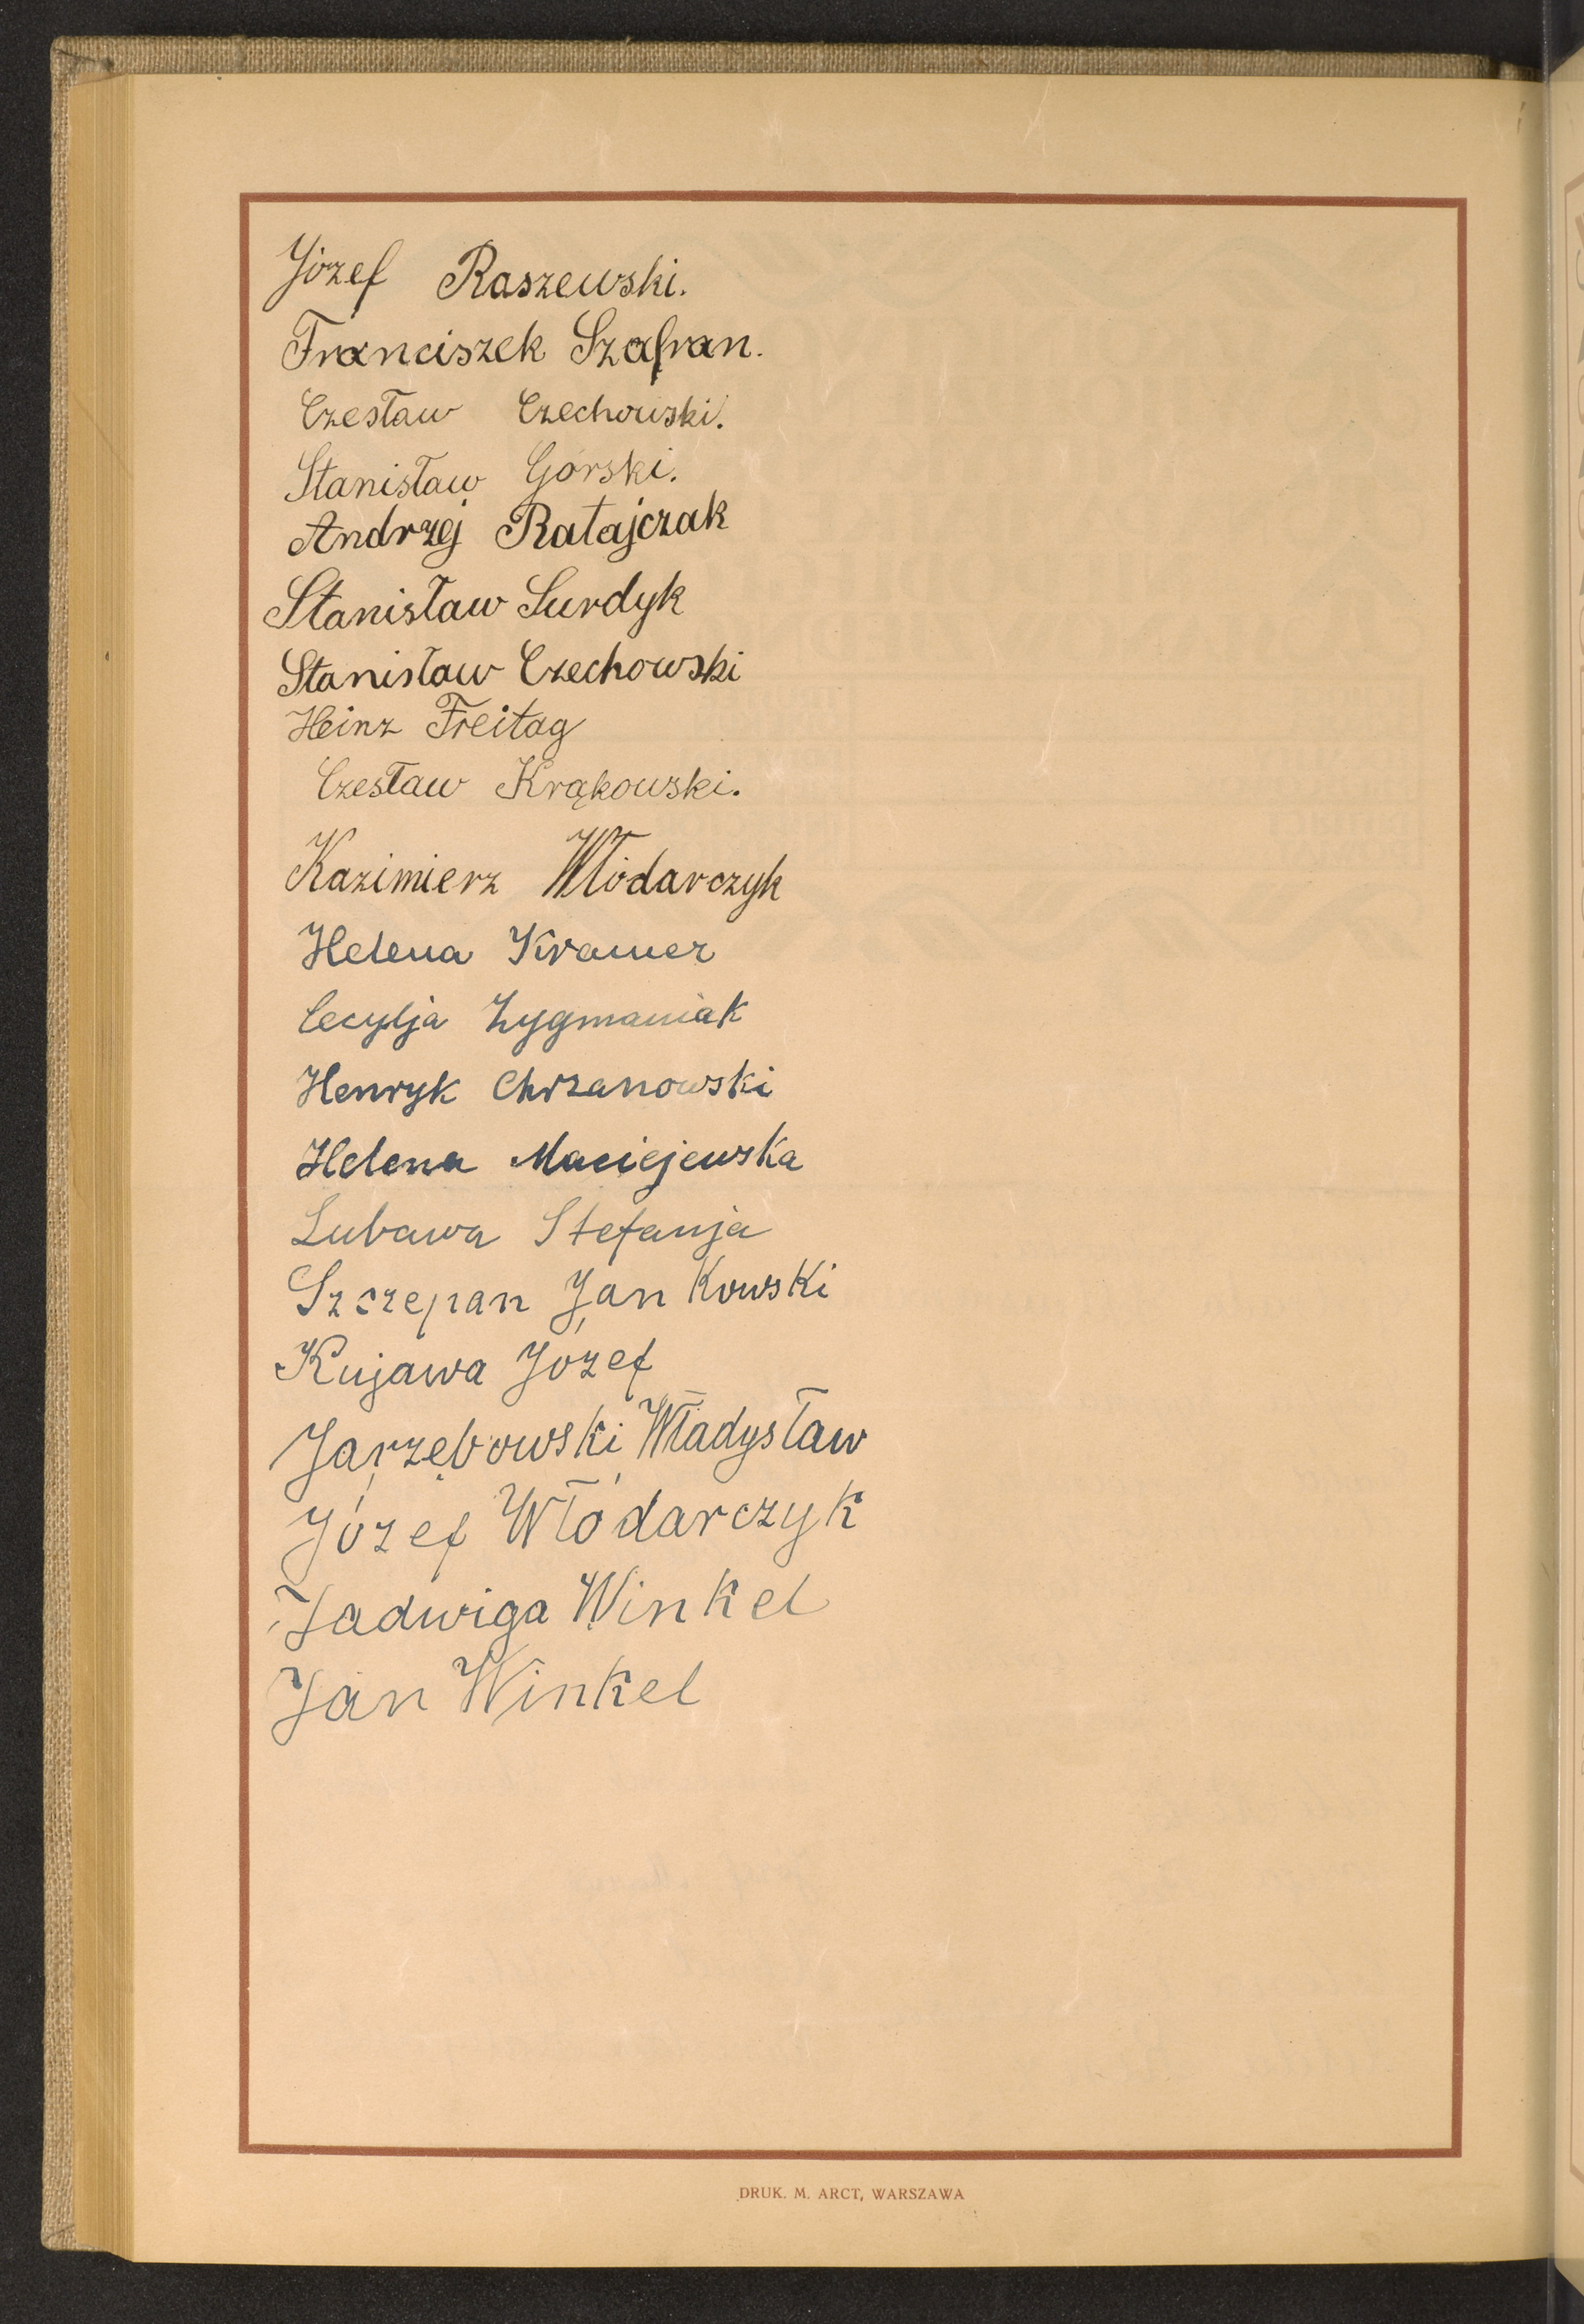 Józef Raszewski.
Franciszek Szafran.
Czesław Czechowski.
Stanisław Górski.
Andrzej Ratajczak
Stanisław Surdyk
Stanisław Czechowski
Heinz Freitag
Czesław Krąkowski.
Kazimierz Włódarczyk
Helena Kramer
Cecylja Zygmaniak
Henryk Chrzanowski
Helena Maciejewska
Lubawa Stefanja
Szczepan Jankowski
Kujawa Józef
Jarzębowski Władysław
Józef Włódarczyk
Jadwiga Winkel
Jan Winkel
DRUK. M. ARCT, WARSZAWA